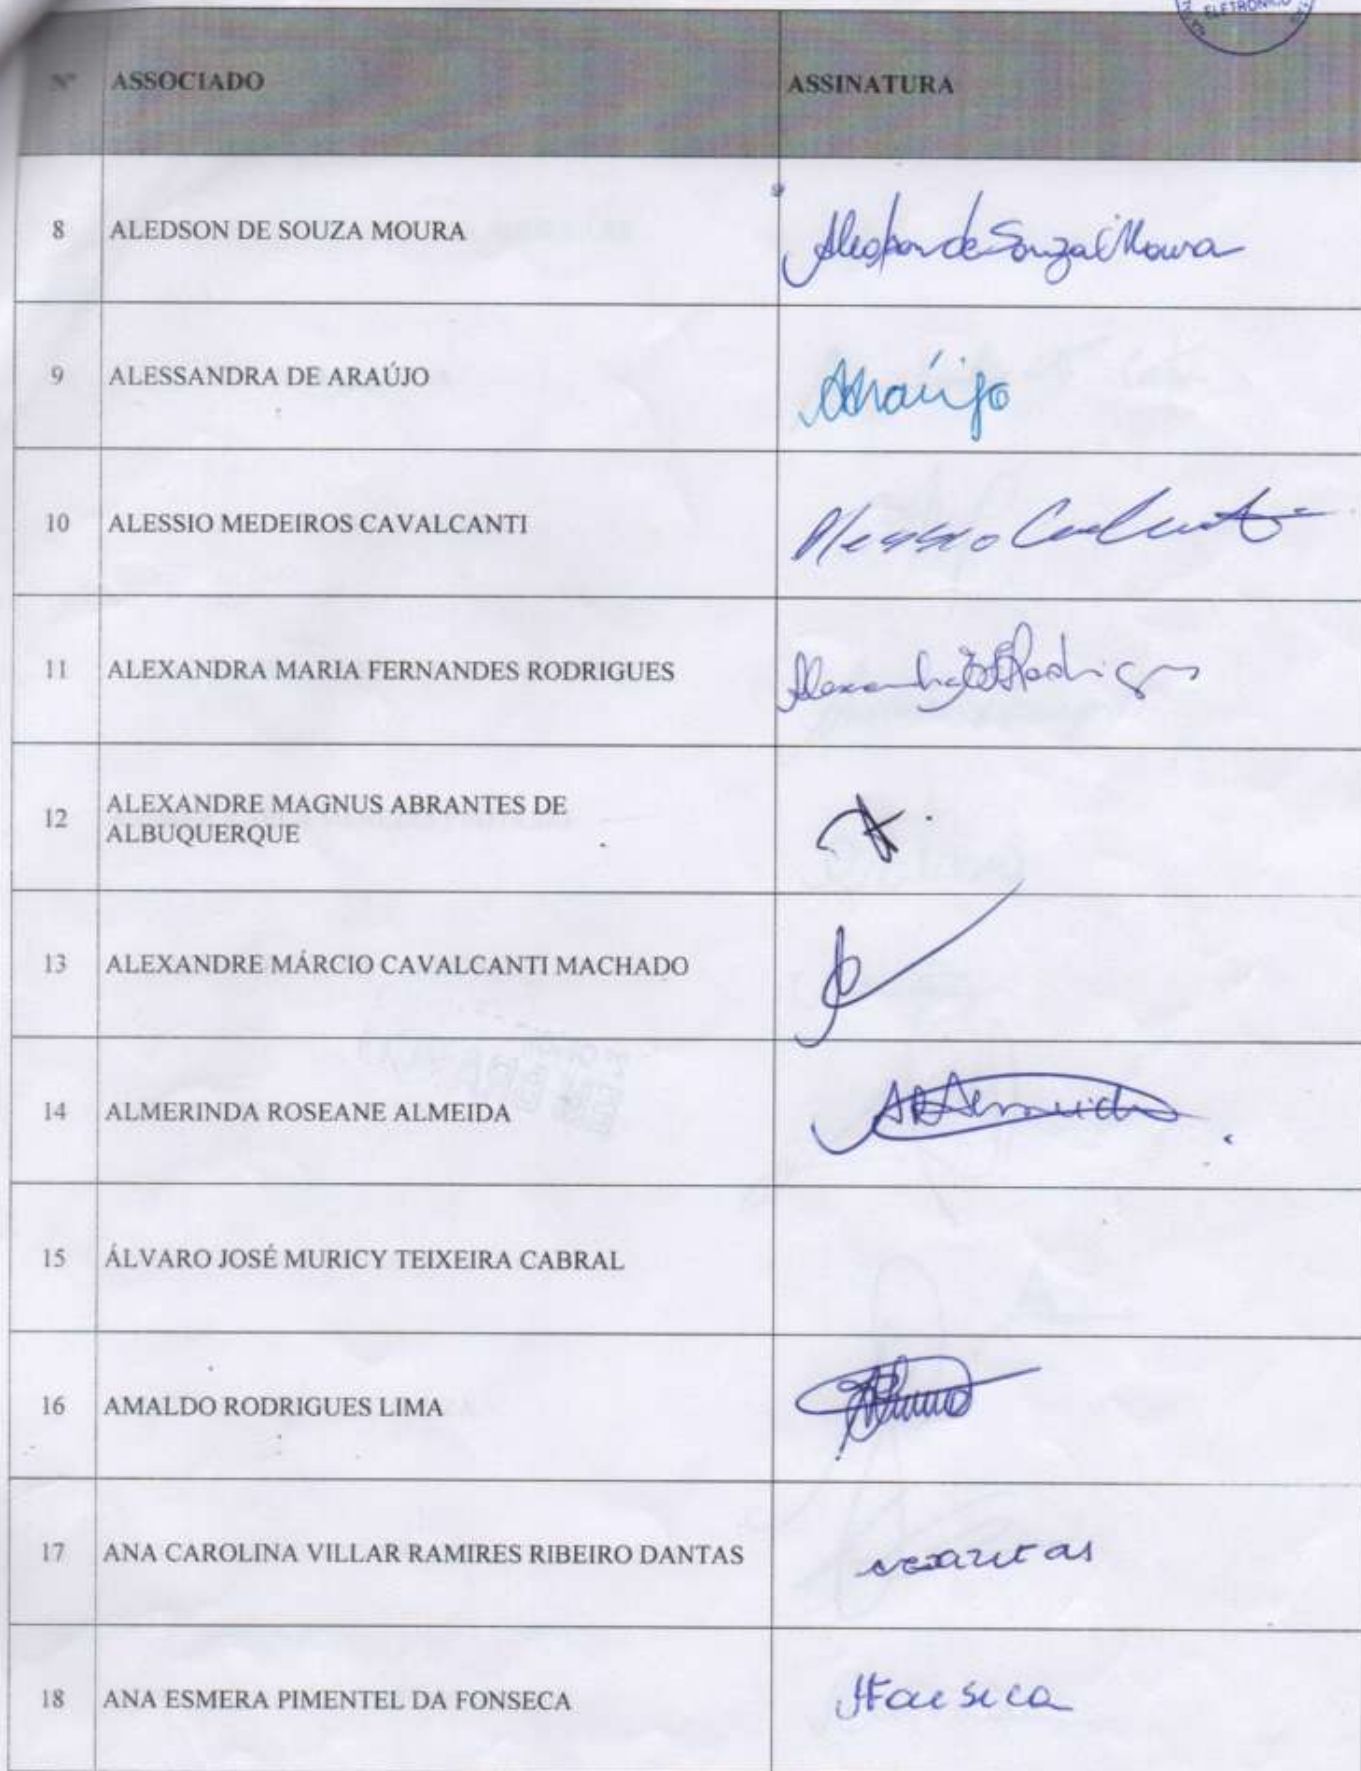 ELETRÔNICO
Nº ASSOCIADO ASSINATURA
8 ALEDSON DE SOUZA MOURA Aledson de Souza Moura
9 ALESSANDRA DE ARAÚJO AAraújo
10 ALESSIO MEDEIROS CAVALCANTI Alessio Cavalcanti
11 ALEXANDRA MARIA FERNANDES RODRIGUES
12 ALEXANDRE MAGNUS ABRANTES DE
ALBUQUERQUE
13 ALEXANDRE MÁRCIO CAVALCANTI MACHADO
14 ALMERINDA ROSEANE ALMEIDA ARAlmeida
15 ÁLVARO JOSÉ MURICY TEIXEIRA CABRAL
16 AMALDO RODRIGUES LIMA
17 ANA CAROLINA VILLAR RAMIRES RIBEIRO DANTAS
18 ANA ESMERA PIMENTEL DA FONSECA